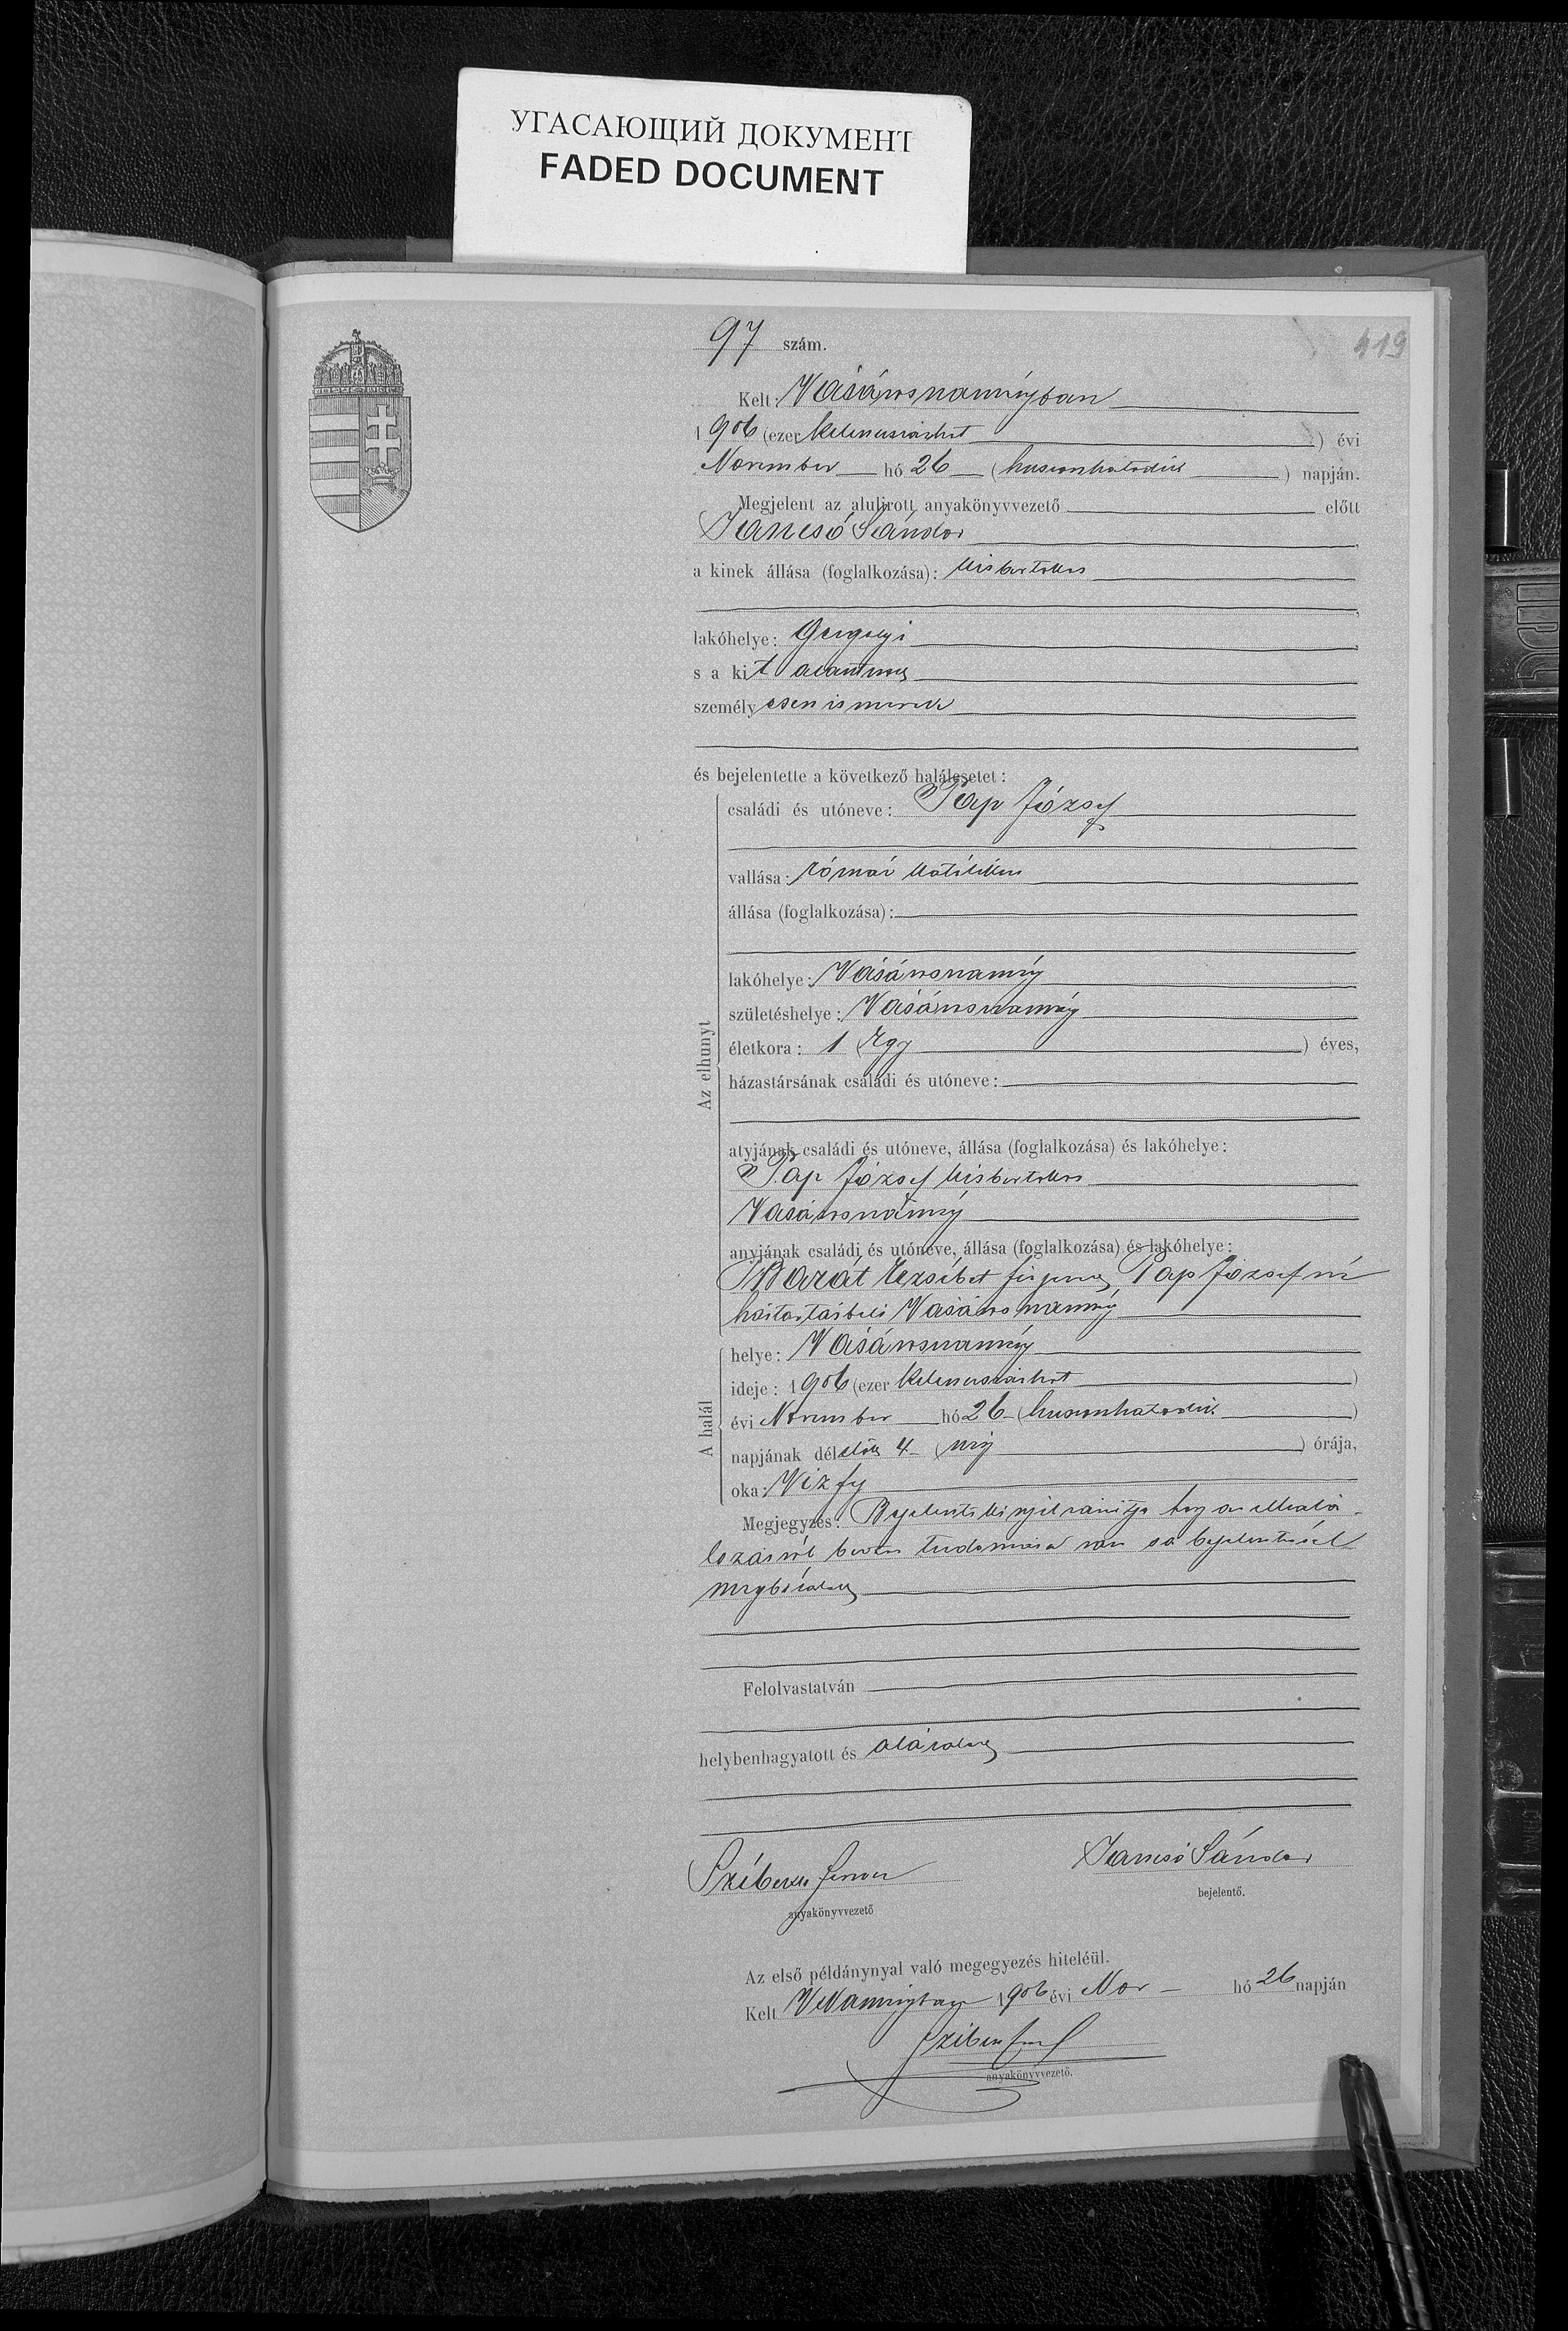 УГАСАЮЩИЙ ДОКУМЕНТ
FADED DOCUMENT
419
97 szám.
Kelt: Vásárosnaményban
1906 (ezer kilencszázhat) évi
November hó 26 (huszonhatodik) napján.
Megjelent az alulirott anyakönyvvezető előtt
Jancsó Sándor
a kinek állása (foglalkozása): kisbirtokos
lakóhelye: Gergelyi
s a kit
személyesen ismerek
és bejelentette a következő halálesetet:
Az elhunyt
családi és utóneve: Pap József
vallása: római katólikus
állása (foglalkozása):
lakóhelye: Vásárosnamény
születéshelye: Vásárosnamény
életkora: 1 (egy) éves,
házastársának családi és utóneve:
atyjának családi és utóneve, állása (foglalkozása) és lakóhelye:
Pap József kisbirtokos
Vásárosnamény
anyjának családi és utóneve, állása (foglalkozása) és lakóhelye:
Barát Erzsébet férjezett Pap Józsefné
háztartásbeli Vásárosnamény
A halál
helye: Vásárosnamény
ideje: 1906 (ezer kilencszázhat)
évi November hó 26 (huszonhatodik)
napjának délelőtt 4 (négy) órája,
oka: Vizfej
Megjegyzés: Bejelentő kinyilvánitja hogy az elhalá-
lozásról tudomása van
Felolvastatván
helybenhagyatott és aláiratott
Jancsó Sándor
anyakönyvvezető
bejelentő.
Az első példánynyal való megegyezés hiteléül.
Kelt VNaményban 1906 évi Nov - hó 26 napján
anyakönyvvezető.